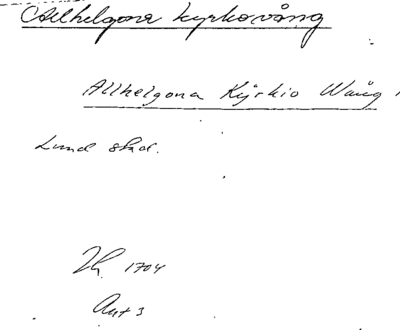 Allhelgona kyrkovång
Allhelgona Kyrkio Wång
Lund stad.
1704
Ant 3